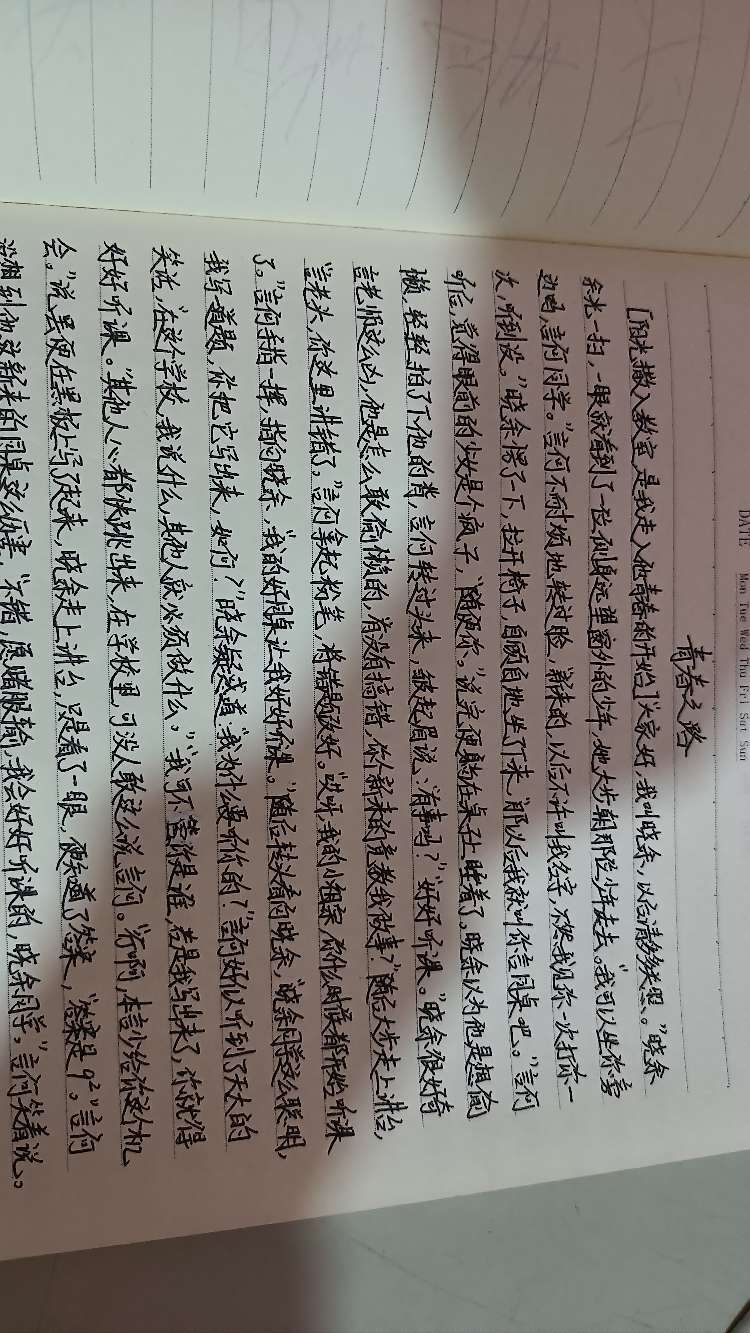 DATE Mon Tue Wed Thu Fri Sat Sun
青春之路
[阳光撒入教室,是我走入他青春的开始]“大家好,我叫晓余,以后请多关照。”晓余
余光一扫,一眼就看到了一位侧身远望窗外的少年,她大步朝那位少年走去。“我可以坐你旁
边吗,言何同学。”言何不耐烦地转过脸,“新来的,以后不许叫我名字,不然我见你一次打你一
次,听到没。”晓余愣了一下,拉开椅子自顾自地坐了下来,“那以后我就叫你言同桌吧。”言何
听后,觉得眼前的少女是个疯子,“随便你。”说完便趴在桌子上睡着了。晓余以为他是想偷
懒,轻轻拍了下他的背,言何转过头来,皱起眉说:“有事吗?”“好好听课。”晓余很好奇
言老师这么凶,他是怎么敢偷懒的,“有没有搞错,你个新来的竟教我做事?”随后大步走上讲台,
“言老头,你这里讲错了。”言何拿起粉笔,将错题改好。“哎呀,我的小祖宗,你什么时候都开始听课
了。”言何手指一挥,指向晓余,“我的好同桌让我好好听课。”随后转头看向晓余,“晓余同学这么聪明,
我写道题,你把它写出来,如何?”晓余疑惑道:“我为什么要听你的?”言何好似听到了天大的
笑话,“在这个学校,我说什么,其他人就必须做什么。”“我可不管你是谁,若是我写出来了,你就得
好好听课。”其他人心都快跳出来,在学校里,可没人敢这么说言何。“行啊,本言少给你这个机
会。”说罢便在黑板上写了起来,晓余走上讲台,只是看了一眼,便知道了答案,“答案是9²。”言何
没想到他这新来的同桌这么厉害,“不错,愿赌服输,我会好好听课的,晓余同学。”言何笑着说。